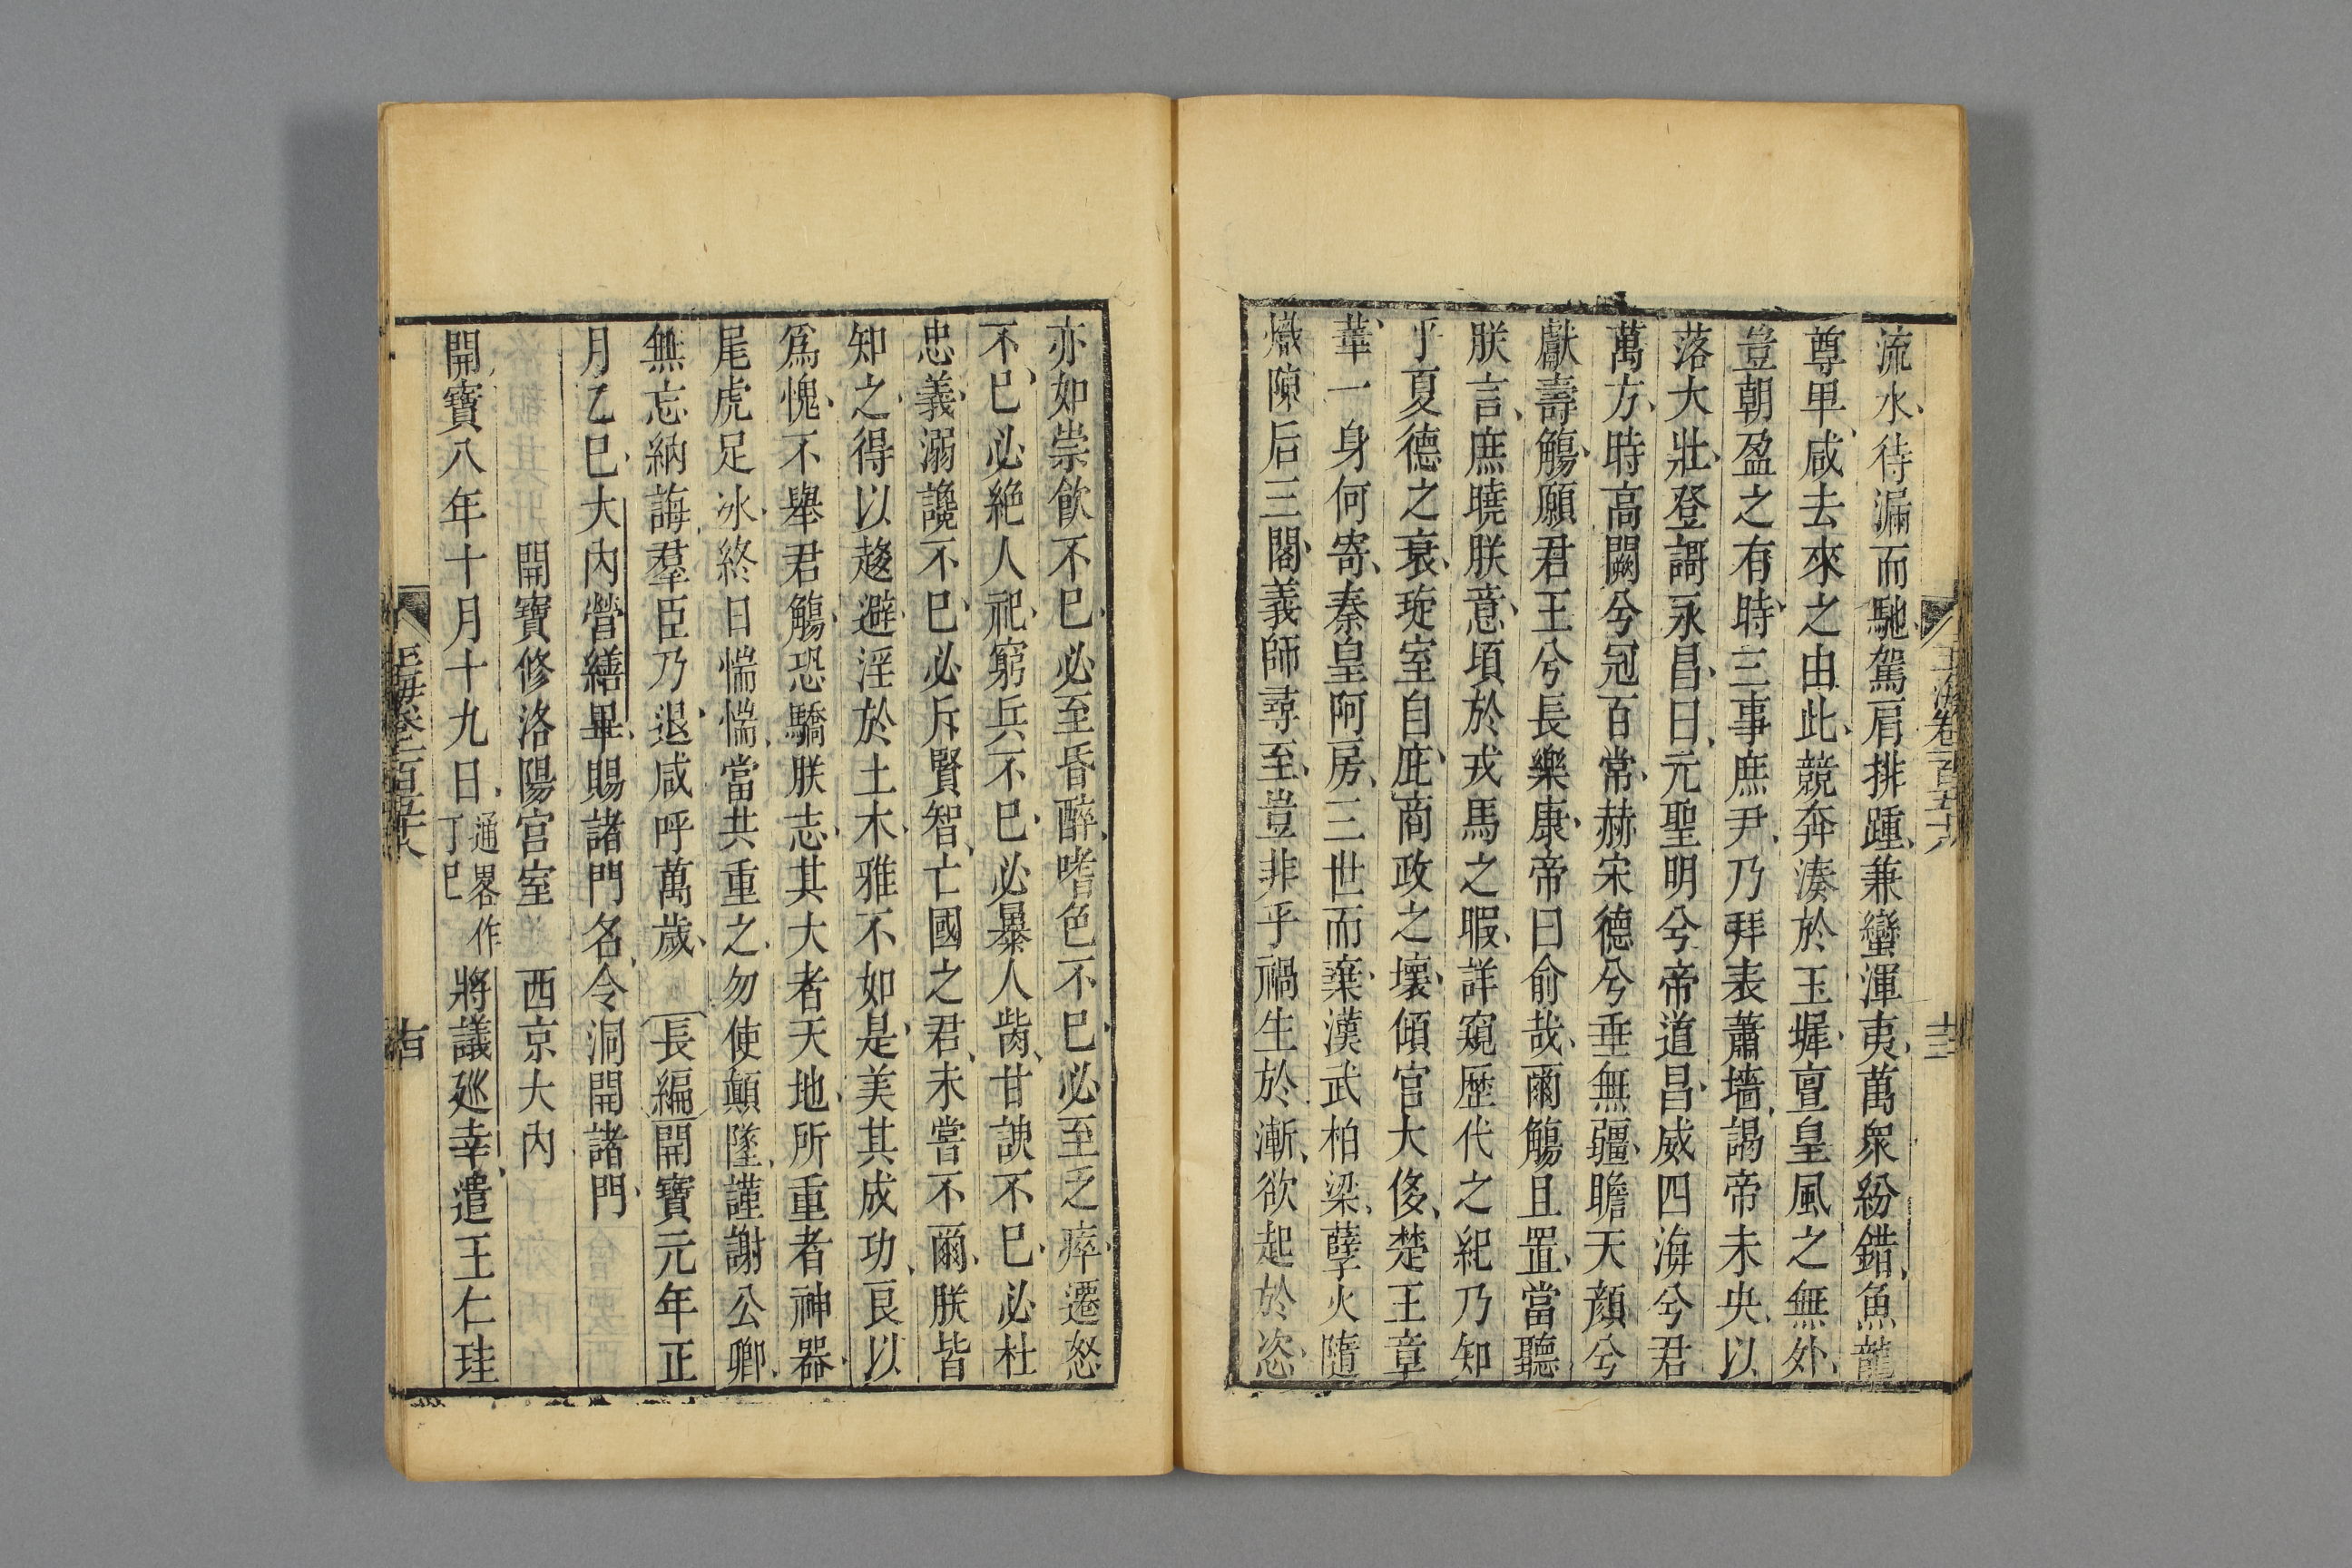 流水待漏而馳駕肩排踵兼蠻渾夷萬衆紛錯魚龍
尊卑咸去來之由此競奔湊於玉墀亶皇風之無外
豈朝盈之有時三事庶尹乃拜表蕭墻謁帝未央以
落大壯登謌永昌曰元聖明兮帝道昌威四海兮君
萬方時高闕兮冠百常赫宋德兮垂無疆瞻天顔兮
獻壽觴願君王兮長樂康帝曰俞哉爾觴且置當聽
朕言庶曉朕意頃於戎馬之暇詳窺歷代之紀乃知
乎夏德之衰琁室自庇商政之壞傾宫大侈楚王章
華一身何寄秦皇阿房三世而棄漢武柏梁孽火隨
熾陳后三閣義師尋至豈非乎禍生於漸欲起於恣
亦如崇飲不已必至昏醉嗜色不已必至乏瘁遷怒
不已必絶人祀窮兵不已必暴人胔甘諛不已必杜
忠義溺讒不已必斥賢智亡國之君未嘗不爾朕皆
知之得以趍避淫於土木雅不如是美其成功良以
爲愧不舉君觴恐驕朕志其大者天地所重者神器
尾虎足冰終日惴惴當共重之勿使顛墜謹謝公卿
無忘納誨羣臣乃退咸呼萬歲 長編開寶元年正
月乙巳大内營繕畢賜諸門名令洞開諸門
開寶修洛陽宫室 西京大内
開寶八年十月十九日通畧作丁巳將議廵幸遣王仁珪
玉海卷一百五十八 十三
玉海卷一百五十八 十四